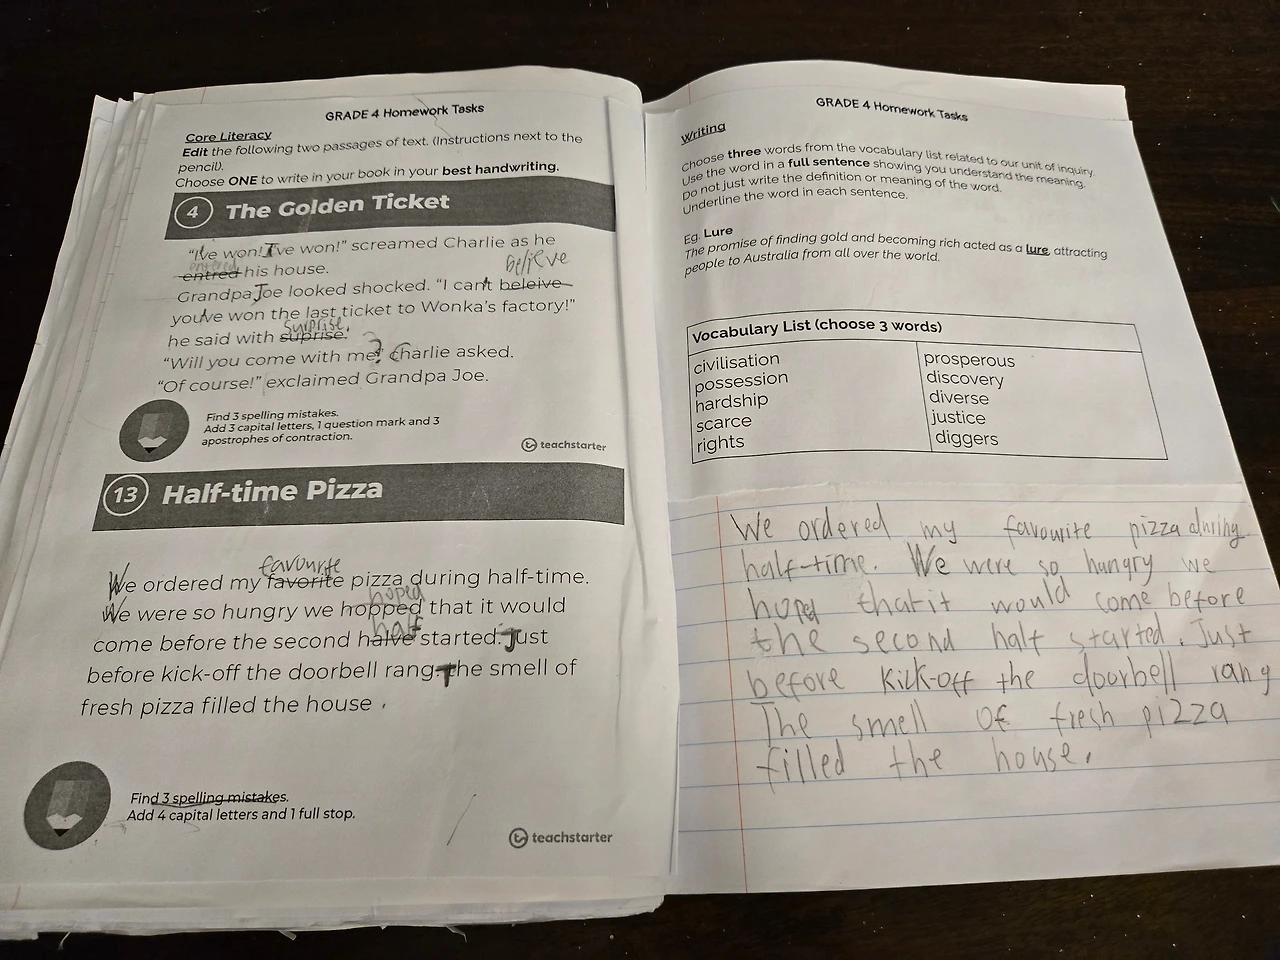 GRADE 4 Homework Tasks
Core Literacy
Edit the following two passages of text. (Instructions next to the
pencil).
Choose ONE to write in your book in your best handwriting.
4 The Golden Ticket
"I've won! I've won!" screamed Charlie as he
entered
believe
entred his house.
Grandpa Joe looked shocked. "I can't beleive
you've won the last ticket to Wonka's factory!"
surprise.
he said with suprise.
"Will you come with me? Charlie asked.
"Of course!" exclaimed Grandpa Joe.
Find 3 spelling mistakes.
Add 3 capital letters, 1 question mark and 3
apostrophes of contraction.
teachstarter
13 Half-time Pizza
favourite
We ordered my favorite pizza during half-time.
hoped
We were so hungry we hopped that it would
half
come before the second halve started. Just
before kick-off the doorbell rang. The smell of
fresh pizza filled the house .
Find 3 spelling mistakes.
Add 4 capital letters and 1 full stop.
teachstarter
GRADE 4 Homework Tasks
Writing
Choose three words from the vocabulary list related to our unit of inquiry.
Use the word in a full sentence showing you understand the meaning.
Do not just write the definition or meaning of the word.
Underline the word in each sentence.
Eg. Lure
The promise of finding gold and becoming rich acted as a lure, attracting
people to Australia from all over the world.
Vocabulary List (choose 3 words)
civilisation
possession
hardship
scarce
rights
prosperous
discovery
diverse
justice
diggers
We ordered my favourite pizza during
half-time. We were so hungry we
hoped that it would come before
the second half started. Just
before kick-off the doorbell rang
The smell of fresh pizza
filled the house.